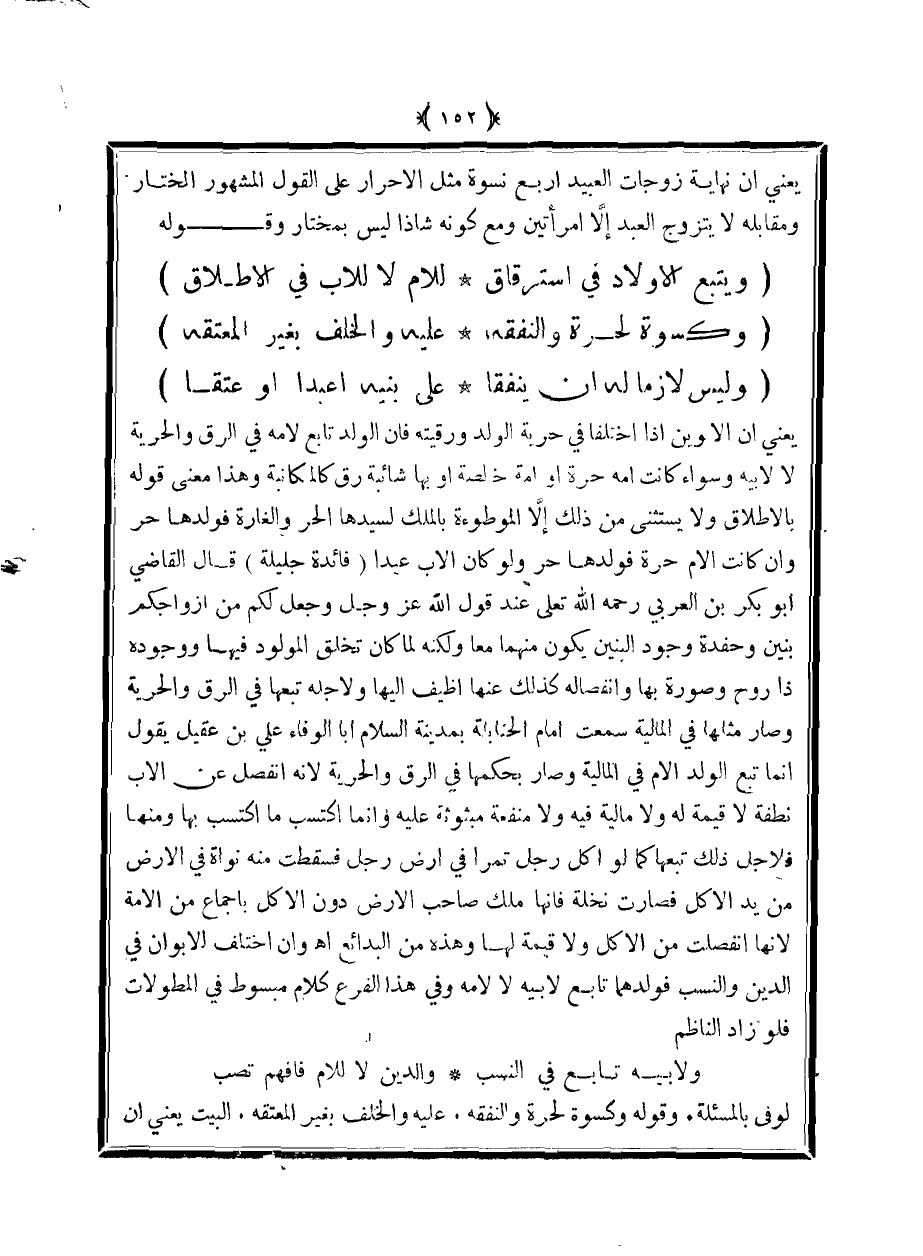 ﴿ ١٥٢ ﴾
يعني ان نهاية زوجات العبيد اربع نسوة مثل الاحرار على القول المشهور المختار
ومقابله لا يتزوج العبد إلَّا امرأتين ومع كونه شاذا ليس بمختار وقـــــوله
( ويتبع الاولاد في استرقاق * للام لا للاب في الاطـلاق )
( وكسوة لحـرة والنفقه * عليه والخلف بغير المعتقه )
( وليس لازما له ان ينفقا * على بنيه اعبدا او عتقـا )
يعني ان الابوين اذا اختلفا في حرية الولد ورقيته فان الولد تابع لامه في الرق والحرية
لا لابيه وسواء كانت امه حرة او امة خالصة او بها شائبة رق كالمكاتبة وهذا معنى قوله
بالاطلاق ولا يستثنى من ذلك إلَّا الموطوءة بالملك لسيدها الحر والغارة فولدهـا حر
وان كانت الام حرة فولدهـا حر ولو كان الاب عبدا ( فائدة جليلة ) قـال القاضي
ابو بكر بن العربي رحمه الله تعلى عند قول الله عز وجل وجعل لكم من ازواجكم
بنين وحفدة وجود البنين يكون منهما معا ولكنه لما كان تخلق المولود فيهـا ووجوده
ذا روح وصورة بها وانفصاله كذلك عنها اظيف اليها ولاجله تبعها في الرق والحرية
وصار مثلها في المالية سمعت امام الحنابلة بمدينة السلام ابا الوفاء علي بن عقيل يقول
انما تبع الولد الام في المالية وصار بحكمها في الرق والحرية لانه انفصل عن الاب
نطفة لا قيمة له ولا مالية فيه ولا منفعة مبثوثة عليه وانما اكتسب ما اكتسب بها ومنهـا
فلاجل ذلك تبعها كما لو اكل رجل تمرا في ارض رجل فسقطت منه نواة في الارض
من يد الاكل فصارت نخلة فانها ملك صاحب الارض دون الاكل باجماع من الامة
لانها انفصلت من الاكل ولا قيمة لهـا وهذه من البدائع اه وان اختلف الابوان في
الدين والنسب فولدهما تابع لابيه لا لامه وفي هذا الفرع كلام مبسوط في المطولات
فلو زاد الناظم
ولابيـه تـابـع في النسب * والدين لا للام فافهم تصب
لوفى بالمسئلة . وقوله وكسوة لحرة والنفقه . عليه والخلف بغير المعتقه . البيت يعني ان